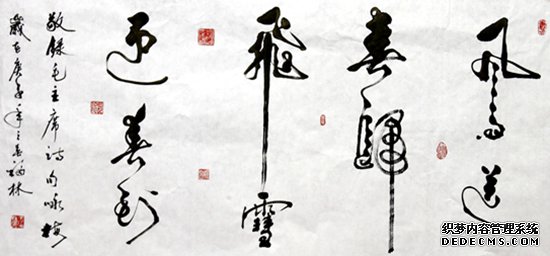 风雨送
春归
飞雪
迎春到
敬录毛主席诗句咏梅
岁在庚
年之春
林
织梦内容管理系统
DEDECMS.COM